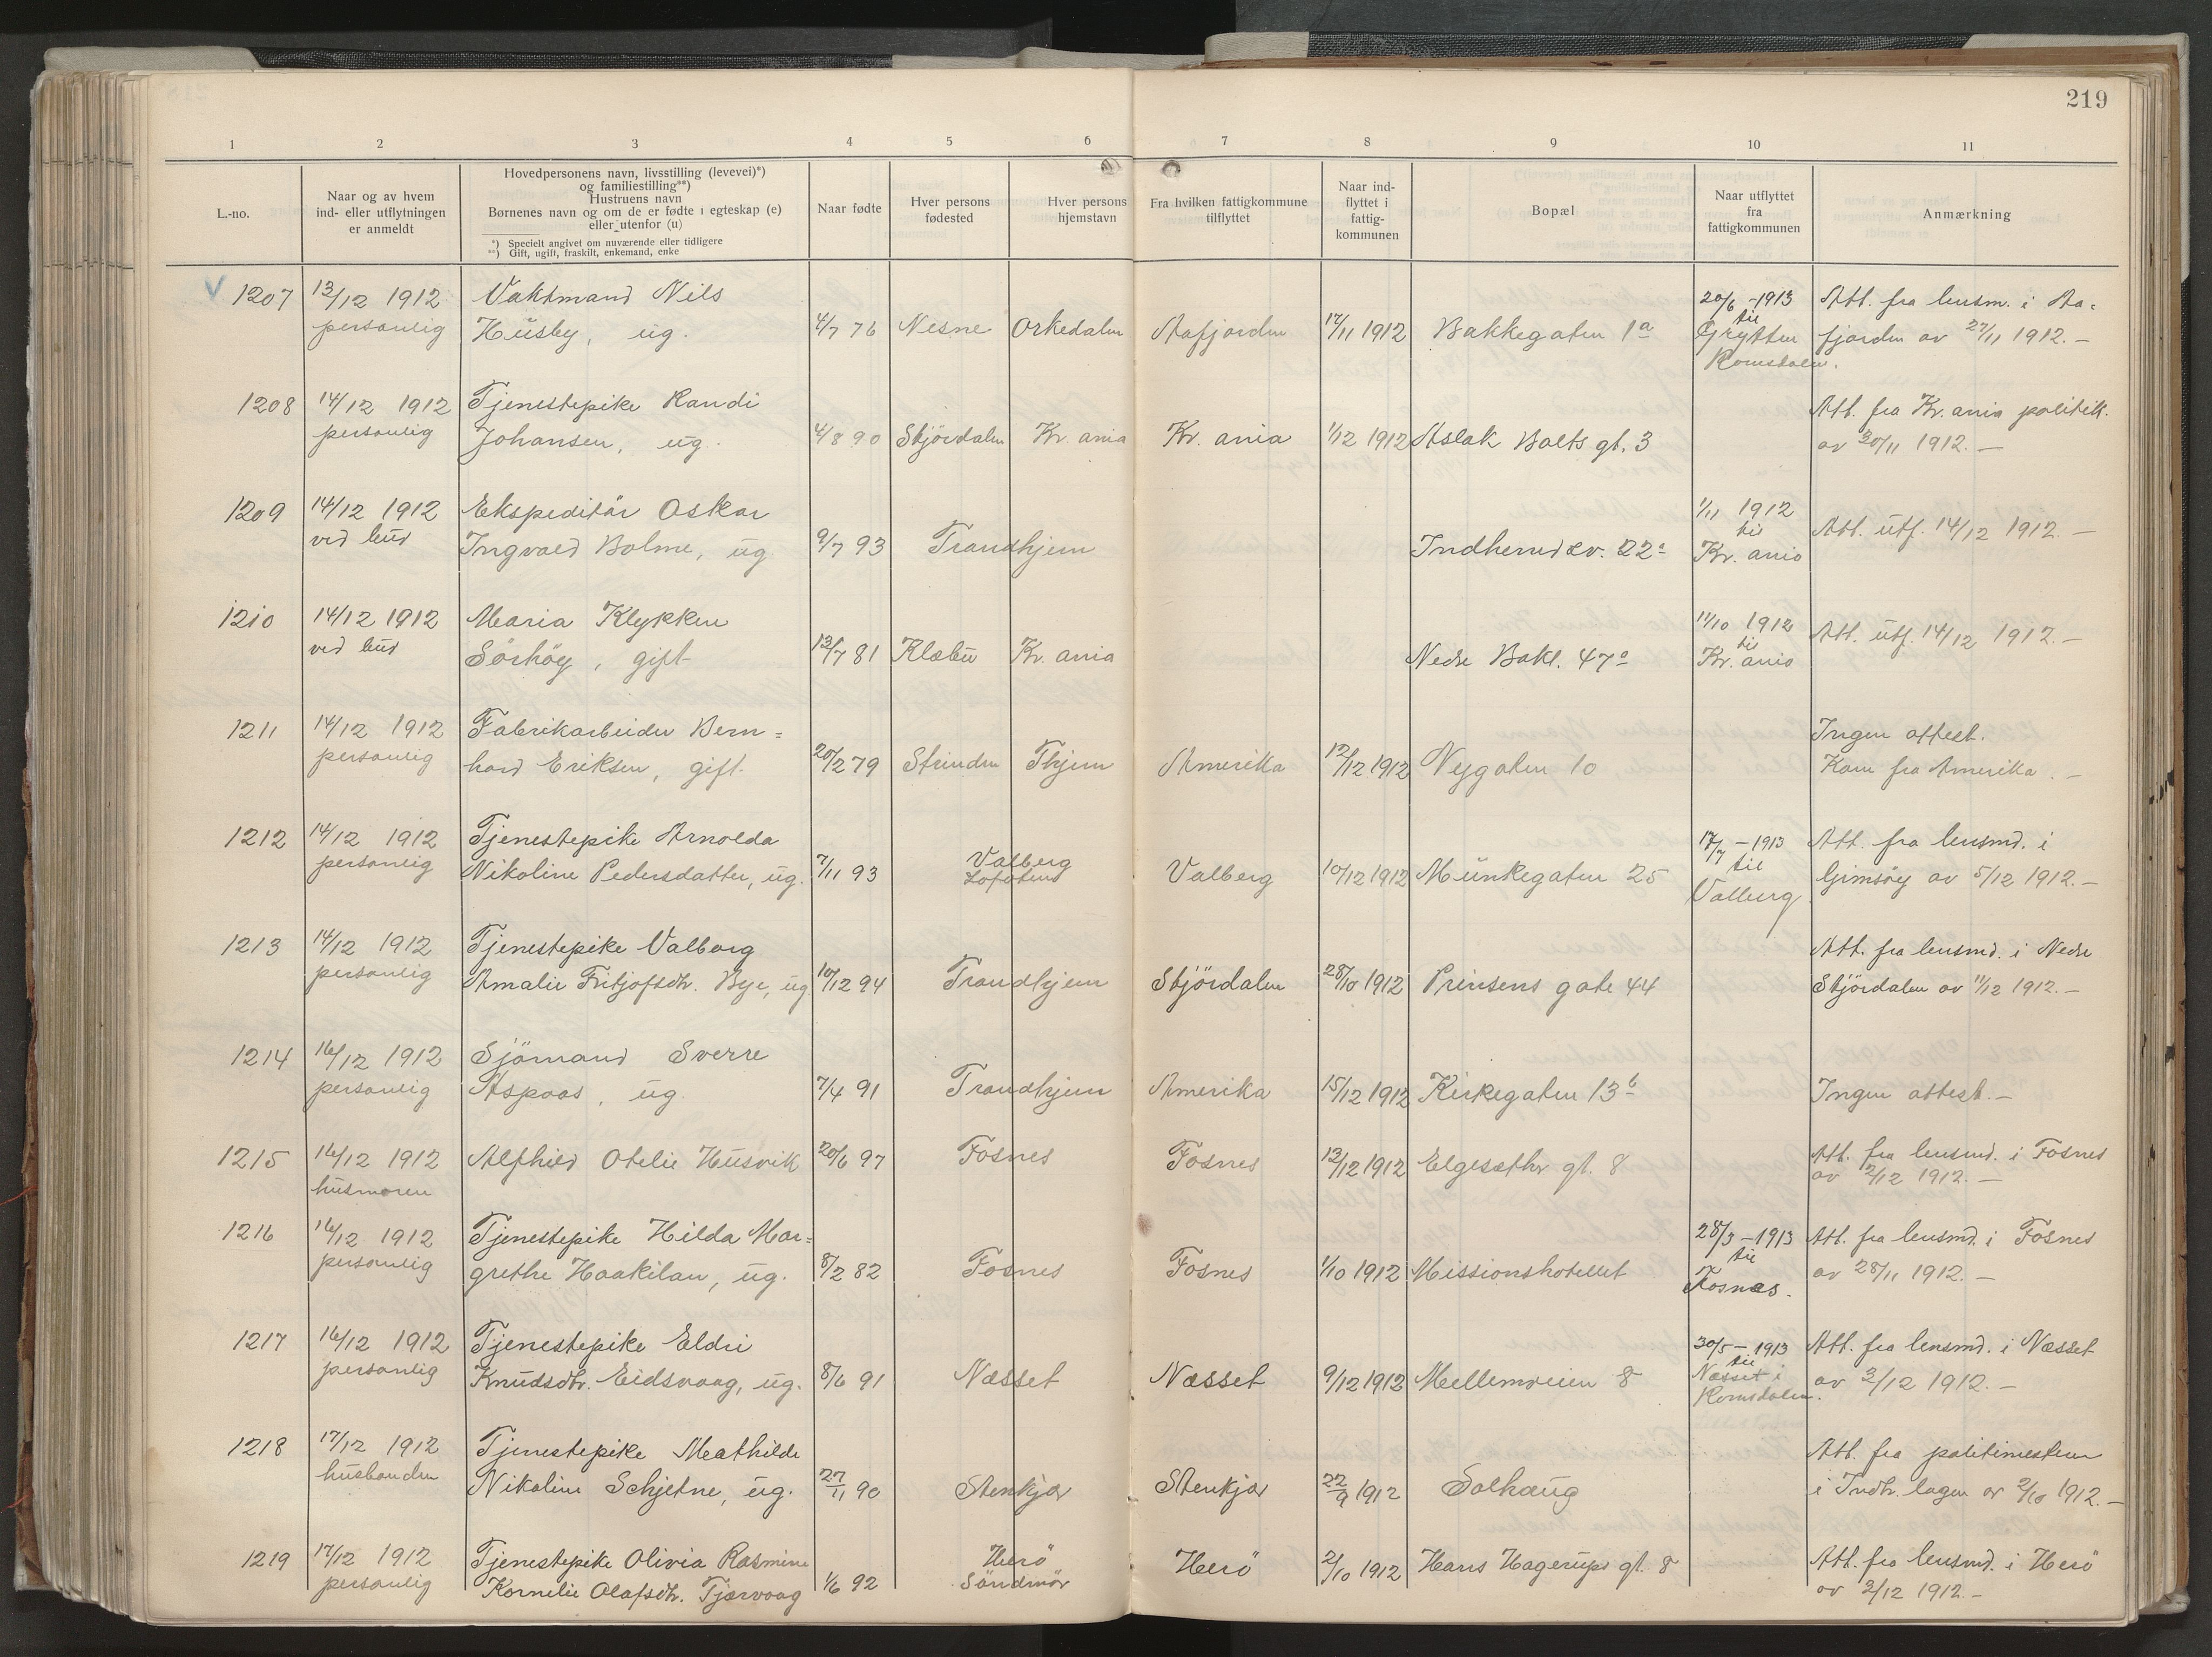 219
1 2 3 4 5 6 7 8 9 10 11
L.-no.
Naar og av hvem
ind- eller utflytningen
er anmeldt
Hovedpersonens navn, livsstilling (levevei)*)
og familiestilling**)
Hustruens navn
Børnenes navn og om de er fødte i egteskap (e)
eller utenfor (u)
*) Specielt angivet om nuværende eller tidligere
**) Gift, ugift, fraskilt, enkemand, enke
Naar fødte
Hver persons
fødested
Hver persons
hjemstavn
Fra hvilken fattigkommune
tilflyttet
Naar ind-
flyttet i
fattig-
kommunen
Bopæl
Naar utflyttet
fra
fattigkommunen
Anmærkning
V 1207 13/12 1912 Vaktmand Nils 20/6 -1913 Att. fra lensm. i Aa=
personlig Husby, ug. 4/7 76 Nesne Orkedalen Aafjorden 17/11 1912 Bakkegaten 1a til Grytten fjorden av 27/11 1912. -
Romsdalen.
1208 14/12 1912 Tjenestepike Randi Att. fra Kr. ania politik.
personlig Johansen, ug. 4/8 90 Stjördalen Kr. ania Kr. ania 1/12 1912 Aslak Bolts gt. 3 av 30/11 1912. -
1209 14/12 1912 Ekspeditör Oskar 1/11 1912
ved bud Ingvald Bolme, ug. 9/7 93 Trondhjem Indherredsv. 22a til Kr. ania Att. utf. 14/12 1912. -
1210 14/12 1912 Maria Klykken 11/10 1912
ved bud Sörhöy, gift 13/7 81 Klæbu Kr. ania Nedre Bakl. 47a til Kr. ania Att. utf. 14/12 1912. -
1211 14/12 1912 Fabrikarbeider Bern= Ingen attest.
personlig hard Eriksen, gift. 20/2 79 Strinden Thjem Amerika 12/12 1912 Nygaten 10 Kom fra Amerika. -
1212 14/12 1912 Tjenestepike Arnolda 17/7 - 1913 Att. fra lensmd. i
personlig Nikoline Pedersdatter, ug. 7/11 93 Valberg Lofoten Valberg 10/12 1912 Munkegaten 25 til Valberg Gimsöy av 5/12 1912. -
1213 14/12 1912 Tjenestepike Valborg Att. fra lensmd. i Nedre
personlig Amalie Fritjofsdtr. Bye, ug. 10/12 94 Trondhjem Stjördalen 28/10 1912 Prinsens gate 44 Stjördalen av 11/12 1912. -
1214 16/12 1912 Sjömand Sverre
personlig Aspaas, ug. 7/4 91 Trondhjem Amerika 15/12 1912 Kirkegaten 13b Ingen attest. -
1215 16/12 1912 Alfhild Otelie Husvik 20/6 97 Fosnes Fosnes 13/12 1912 Elgesæthr gt. 8 Att. fra lensmd. i Fosnes
husmoren av 2/12 1912. -
1216 16/12 1912 Tjenestepike Hilda Mar= 28/3 - 1913 Att. fra lensmd. i Fosnes
personlig grethe Haakilan, ug. 8/2 82 Fosnes Fosnes 1/10 1912 Missionshotellet til Fosnæs. av 28/11 1912. -
1217 16/12 1912 Tjenestepike Eldri 30/5 - 1913 Att. fra lensmd. i Næsset
personlig Knudsdtr. Eidsvaag, ug. 8/6 91 Næsset Næsset 9/12 1912 Mellemveien 8 til Næsset i Romsdalen. av 3/12 1912. -
1218 17/12 1912 Tjenestepike Mathilde Att. fra politimesteren
husbonden Nikoline Schjetne, ug. 27/11 90 Stenkjær Stenkjær 22/9 1912 Solhaug i Indh. lagen av 2/10 1912. -
1219 17/12 1912 Tjenestepike Olivia Rasmine Herö Herö 2/10 1912 Hans Hagerups gt. 8 Att. fra lensmd. i Herö
personlig Kornelie Olafsdtr. Tjærvaag 1/6 92 Söndmör av 2/12 1912. -